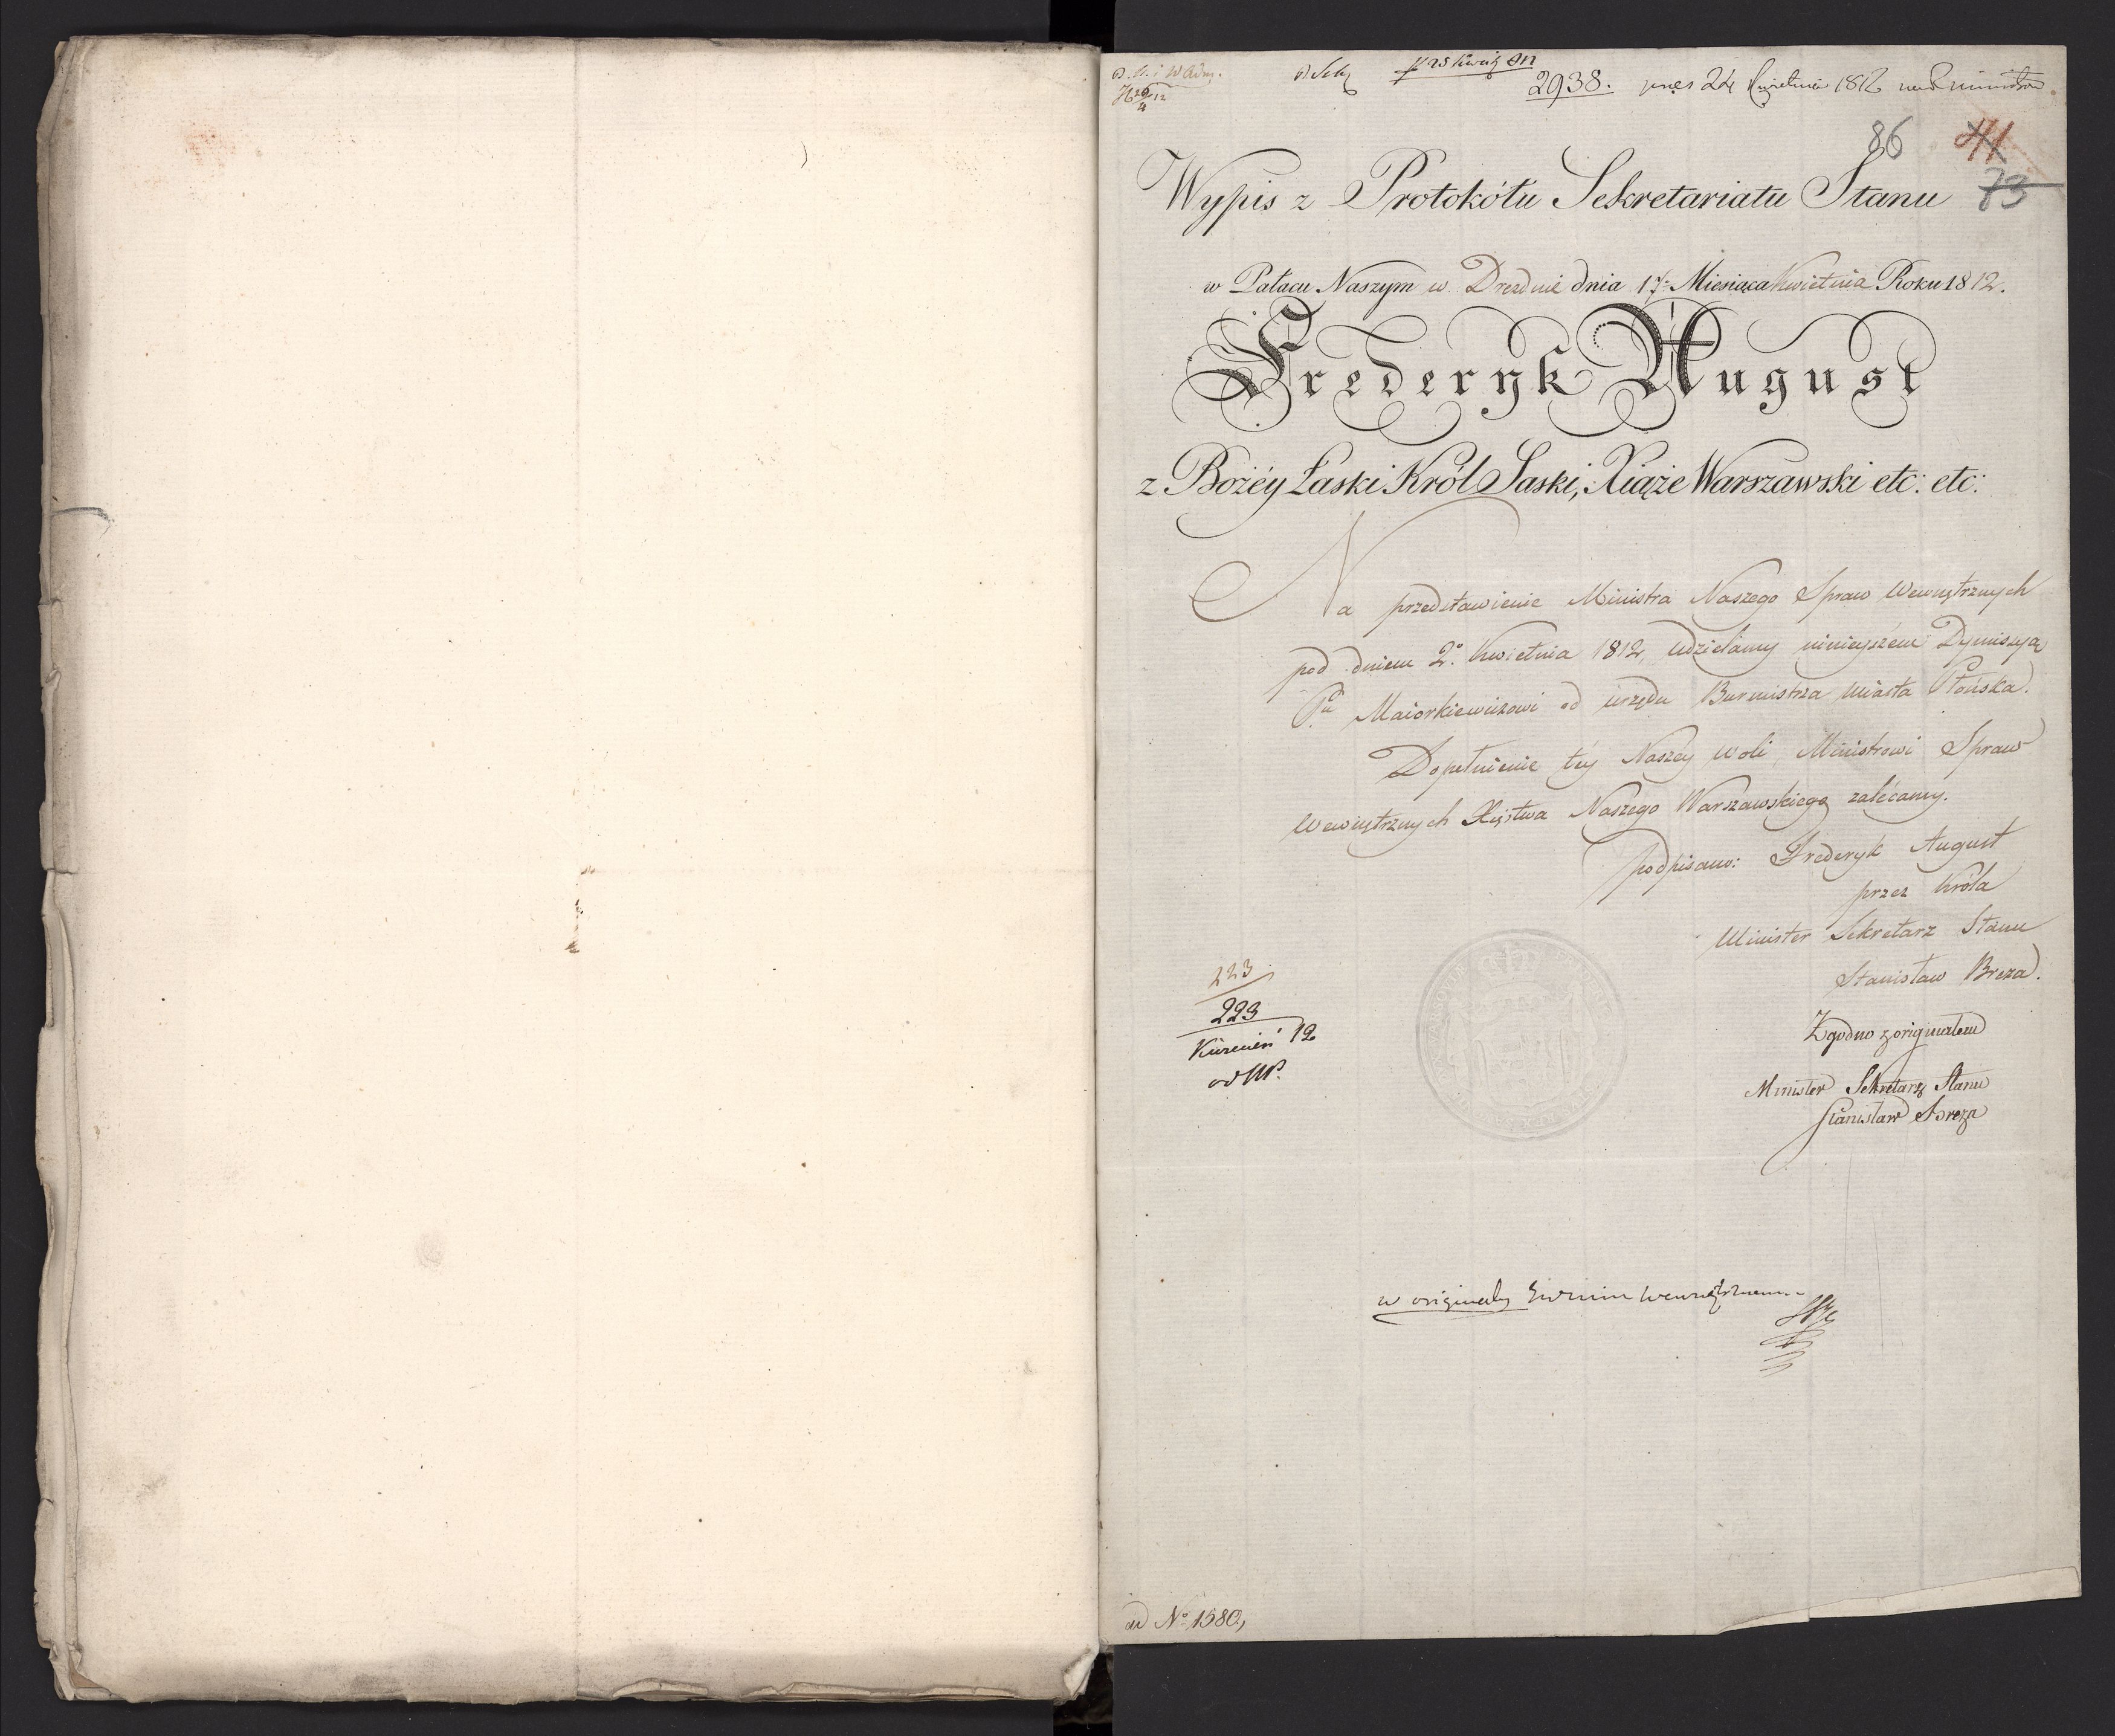 2938. pręs 24 Kwietnia 1812
86 41
73
Wypis z Protokółu Sekretariatu Stanu
w Pałacu Naszym w Dreznie dnia 17. Miesiąca Kwietnia Roku 1812.
Frederyk August
z Bożéy Łaski Król Saski, Xiąże Warszawski etc: etc:
Na przedstawienie Ministra Naszego Spraw Wewnętrznych
pod dniem 2º. Kwietnia 1812, udzielamy ninieyszem Dymissyą
Pu Maiorkiewiczowi od urzędu Burmistrza Miasta Płońska.
Dopełnienie téy Naszéy Woli Ministrowi Spraw
Wewnętrznych Xięstwa Naszego Warszawskiego zalécamy.
podpisano: Frederyk August
przez Króla
Minister Sekretarz Stanu
Stanisław Breza.
223
223
12
Zgodno z originałem
Minister Sekretarz Stanu
Stanisław Breza
ad Nº 1580,